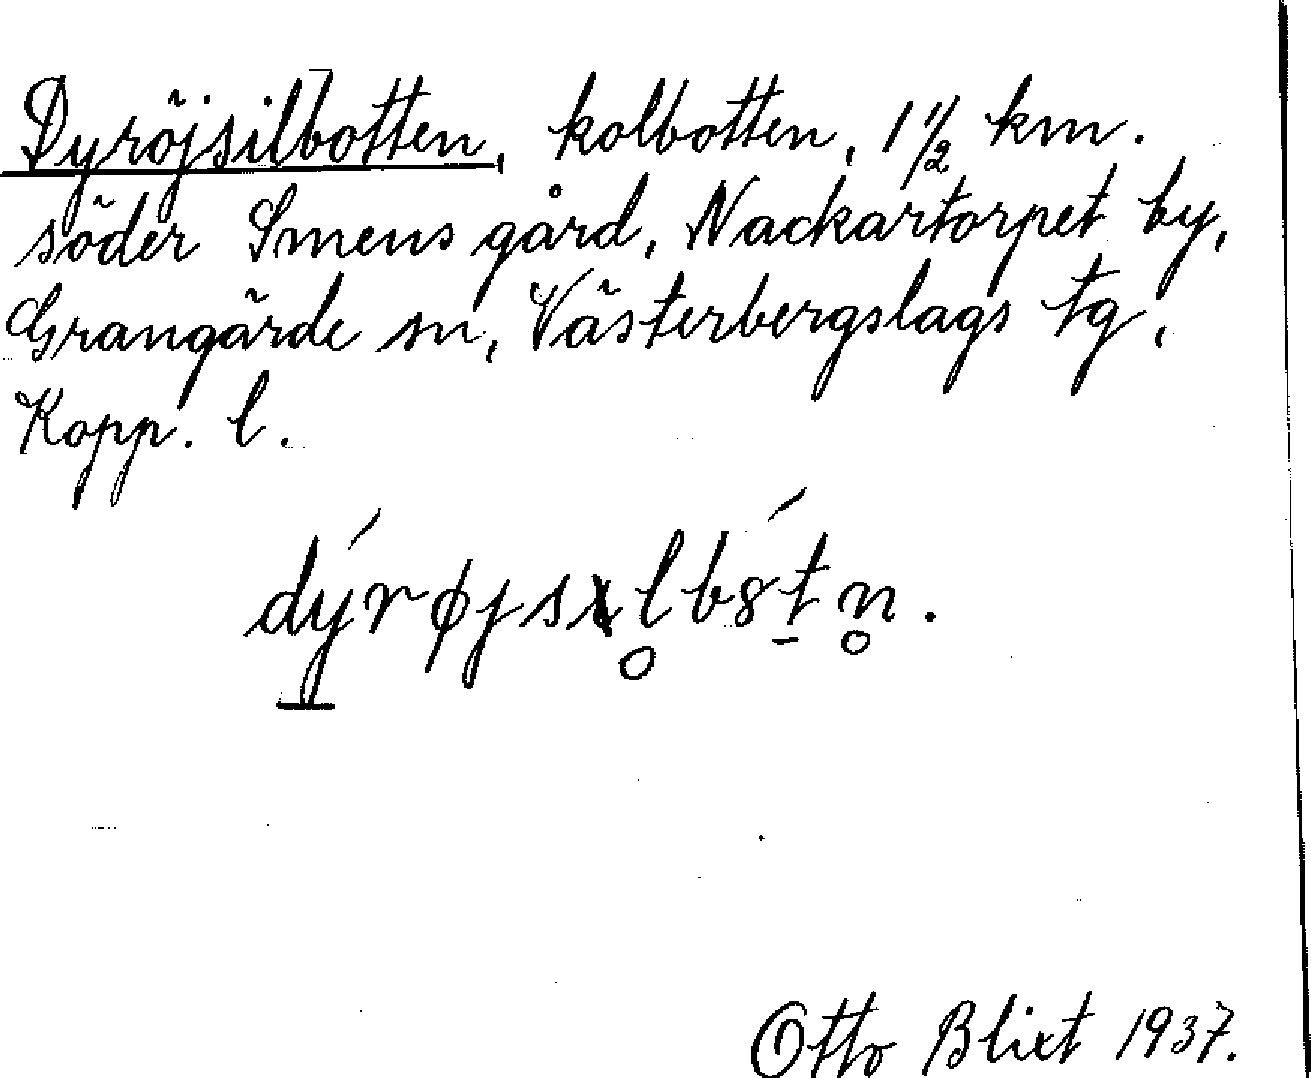 Dyröjsilbotten, kolbotten, 1 1/2 km.
söder Smens gård, Nackartorpet by,
Grangärde sn, Västerbergslags tg,
Kopp. l.
Otto Blixt 1937.